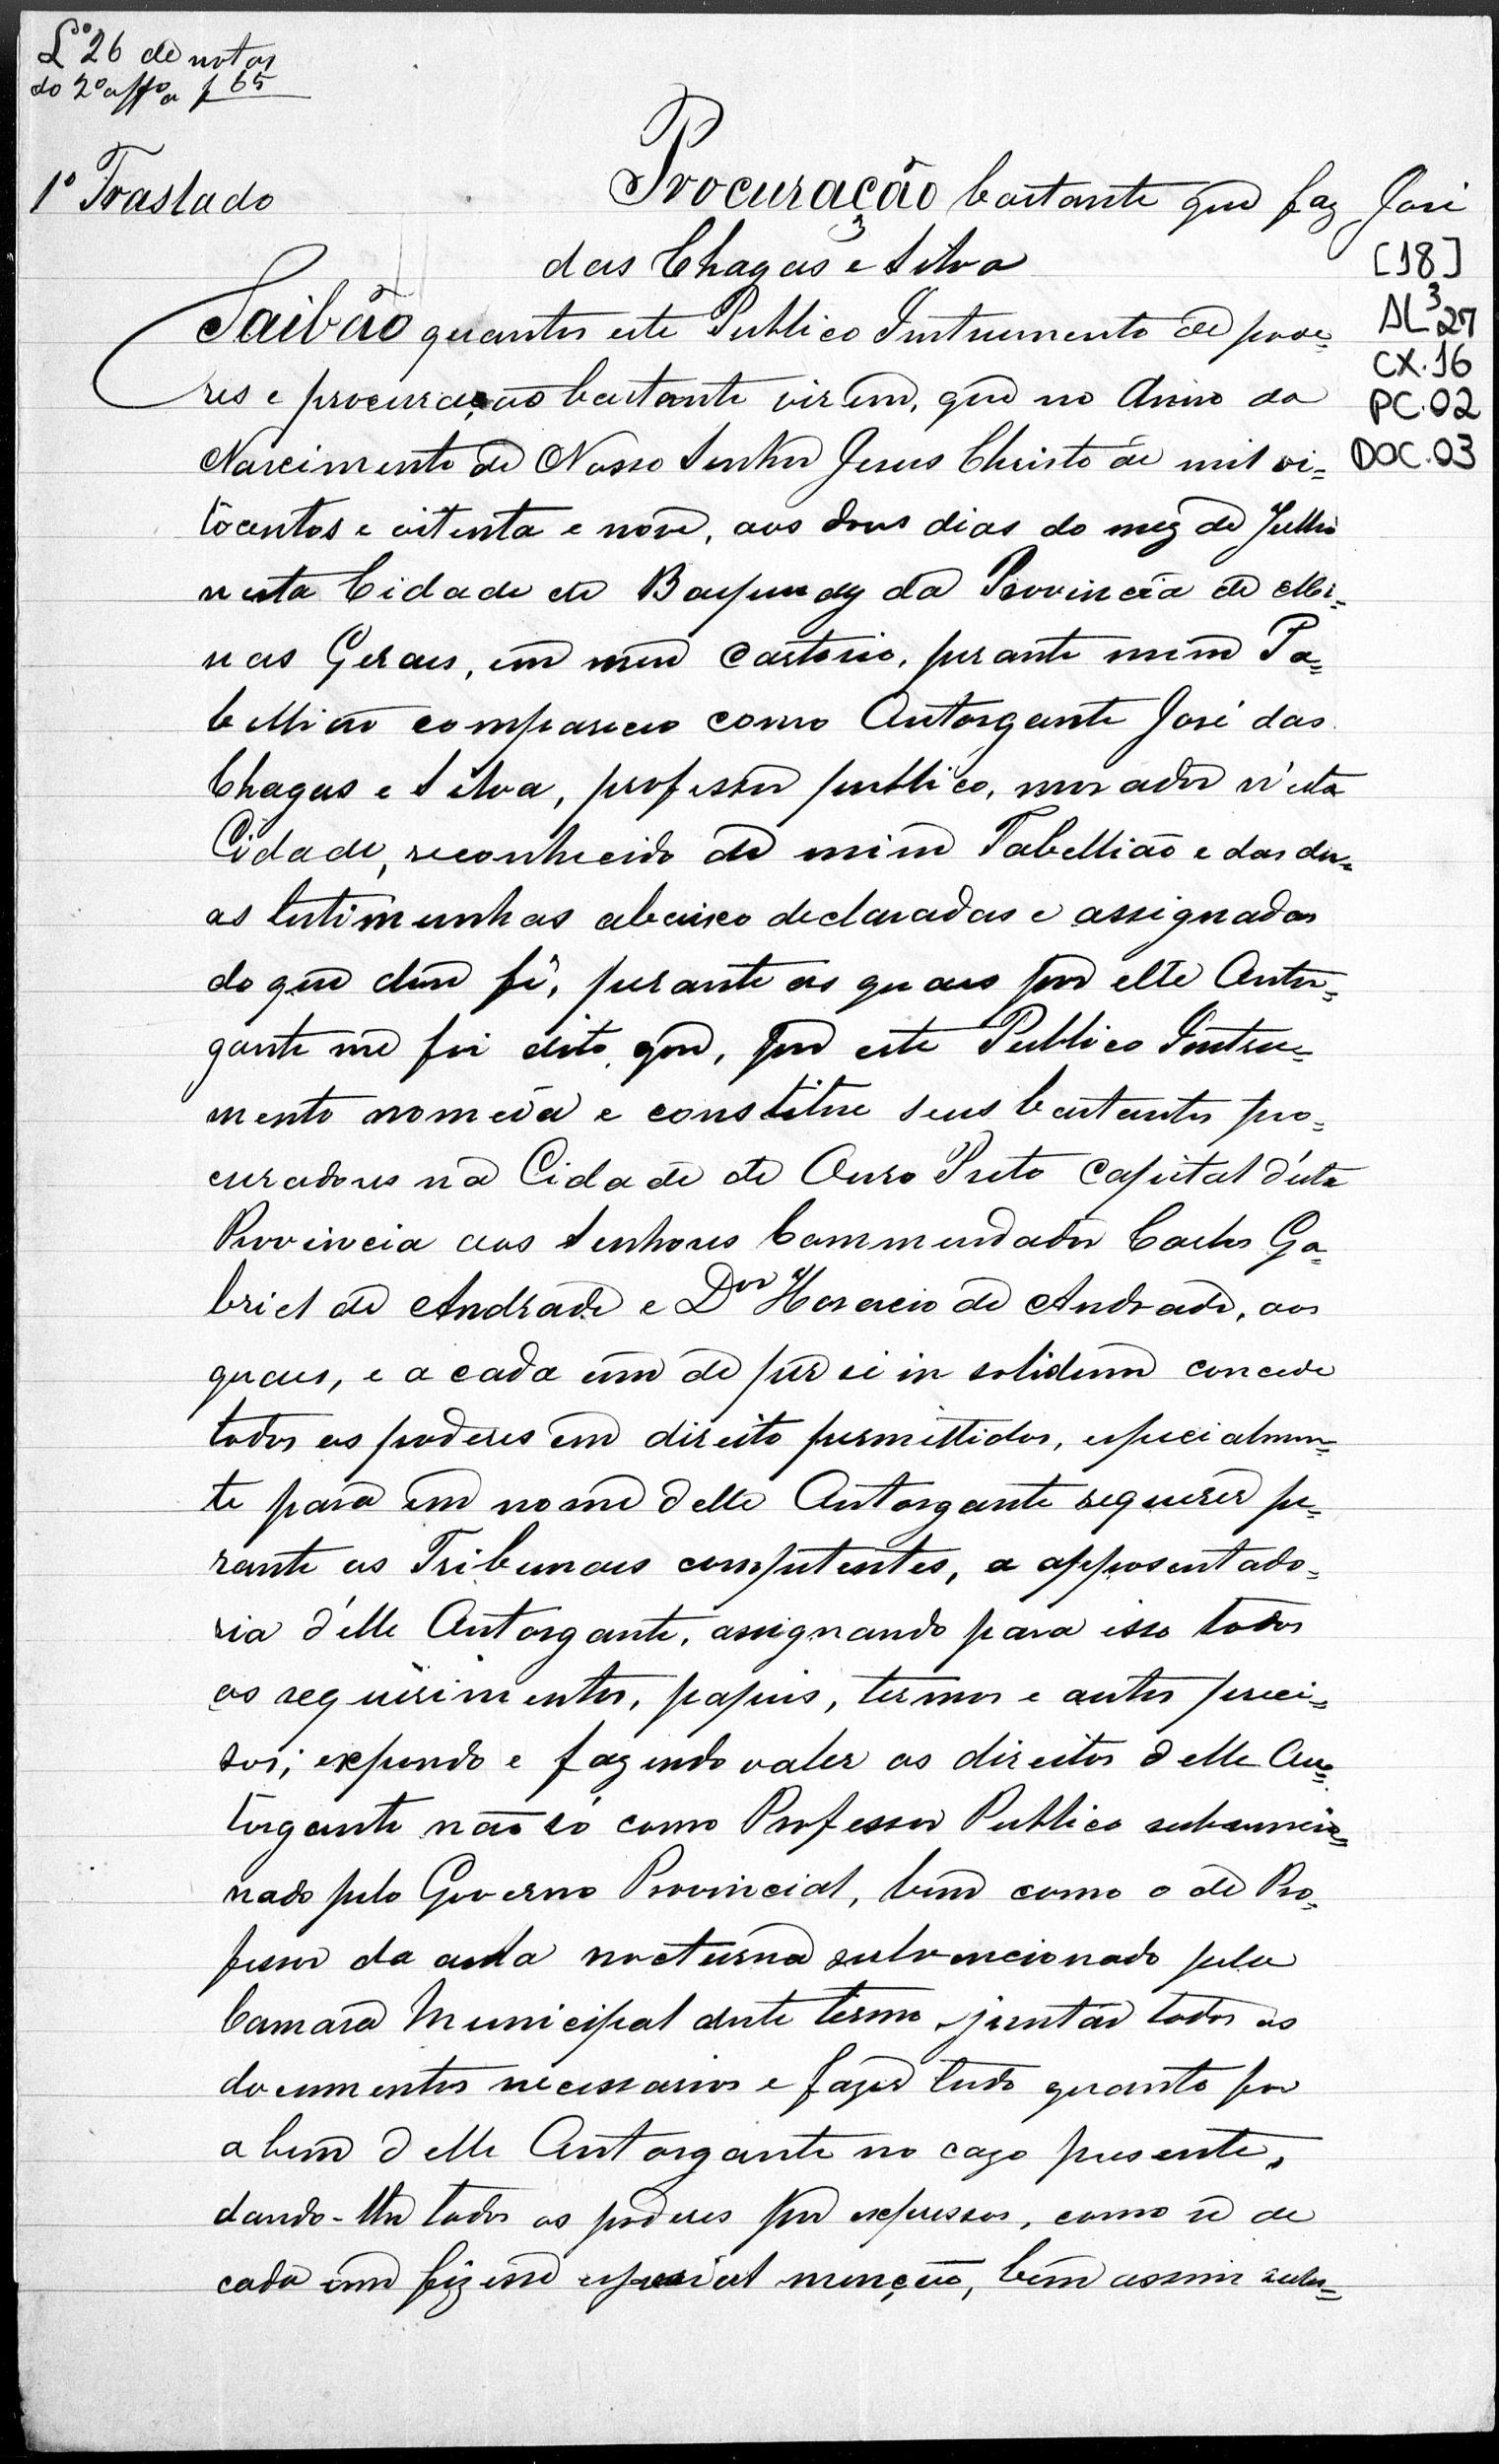 Lº 26 de notas
do 2º affº a f 65
1º Traslado
Procuração bastante que faz José
das Chagas e Silva
[18]
AL³ 27
CX.16
PC.02
DOC.03
Saibão quantos este Publico Instrumento de pode=
res e procuração bastante virem, que no Anno do
Nascimento de Nosso Senhor Jesus Christo de mil oi=
tocentos e oitenta e nove, aos dous dias do mez de Julho
nesta Cidade de Baependy da Provincia de Mi=
nas Geraes, em meu cartorio, perante mim Ta=
bellião compareceo como Outorgante José das
Chagas e Silva, professor publico, morador n'esta
Cidade, reconhecido de mim Tabellião e das du=
as testimunhas abaixo declaradas e assignadas
do que dou fé, perante as quaes por elle Outor=
gante me foi dito, que, por este Publico Instru=
mento nomeia e constitue seus bastantes pro=
curadores na Cidade de Ouro Preto capital d'esta
Provincia aos Senhores Commendador Carlos Ga=
briel de Andrade e Dor Horacio de Andrade, aos
quaes, e a cada um de per si in solidum concede
todos os poderes em direito permittidos, especialmen=
te para em nome delle Outorgante requerer pe=
rante os Tribunaes competentes, a apposentado=
ria d'elle Outorgante, assignando para isso todos
os requerimentos, papeis, termos e autos preci=
sos; expondo e fazendo valer os direitos delle Ou=
torgante não só como Professor Publico subvencio=
nado pelo Governo Provincial, bem como o de Pro=
fessor da aula nocturna subvencionado pela
Camara Municipal deste termo, juntar todos os
documentos necessarios e fazer tudo quanto for
a bem delle Outorgante no cazo presente,
dando-lhe todos os poderes por expressos, como se de
cada um fizesse especial menção, bem assim subs=